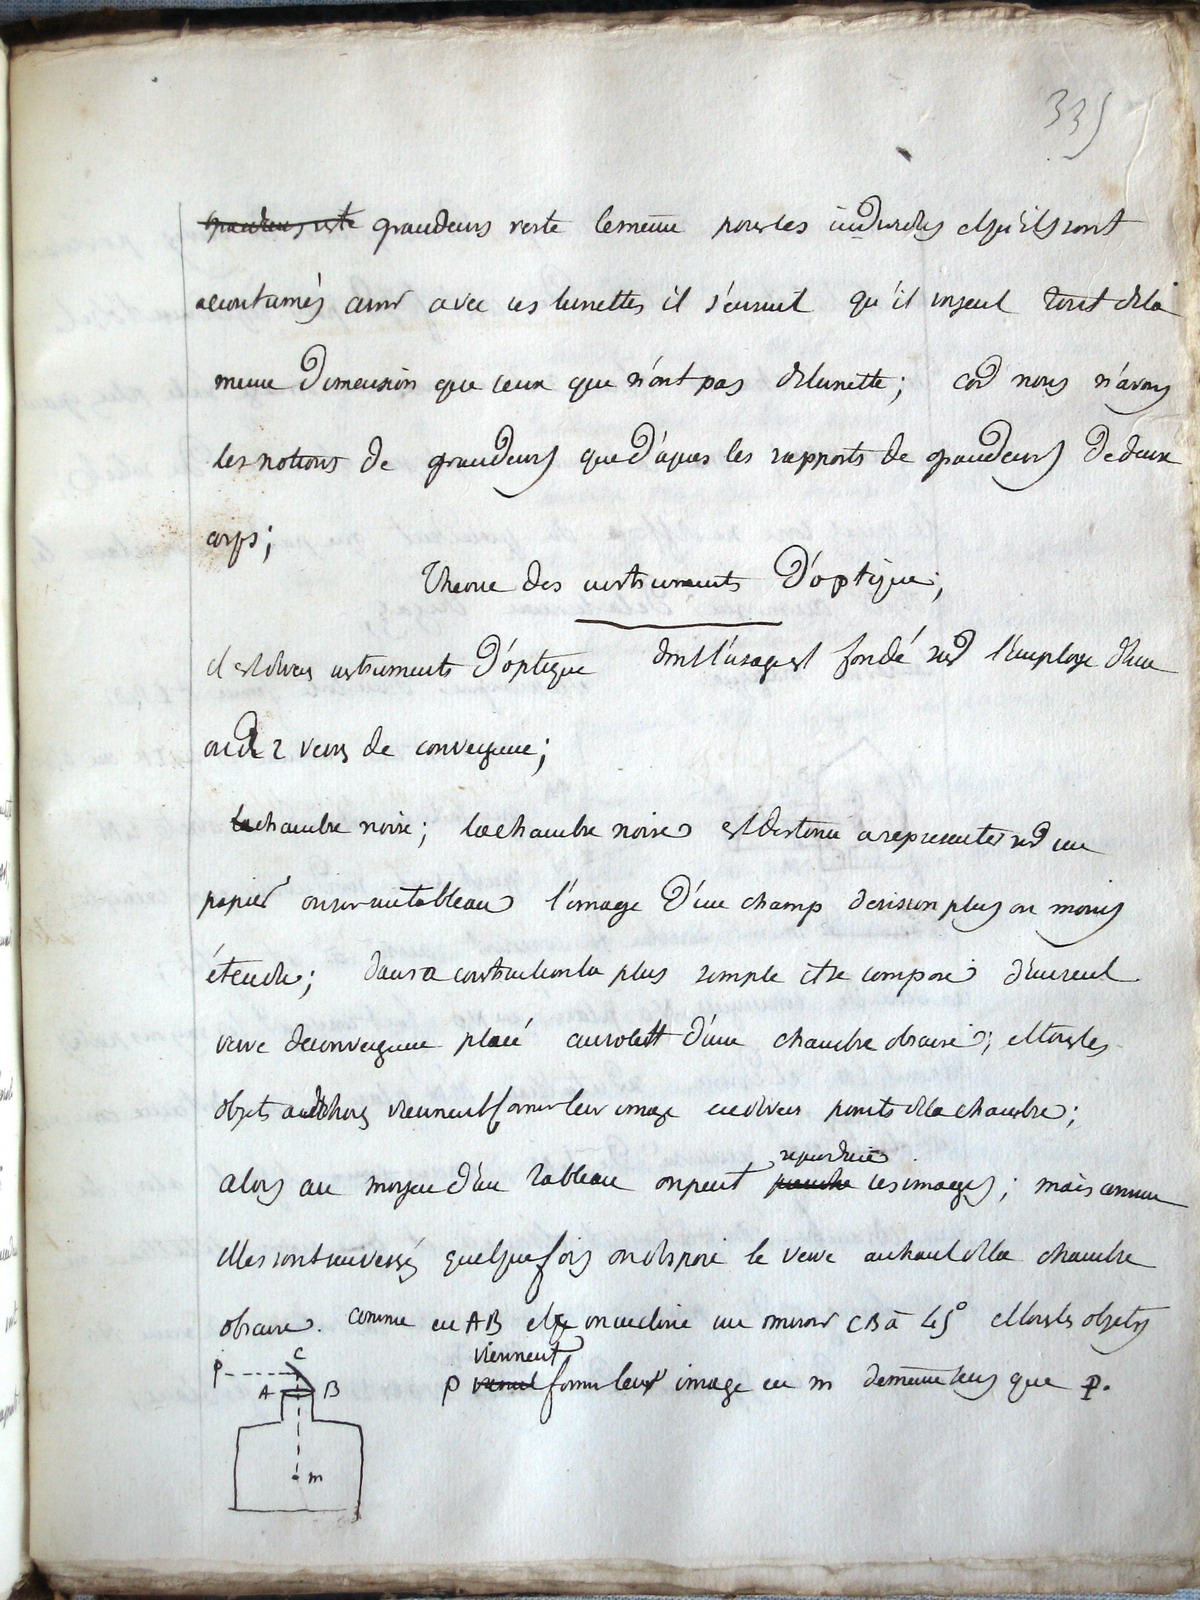 335
grandeurs reste grandeurs reste lememe pour les individus et qu'ils sont
acoutumés ainsi avec ces lunettes il s'ensuit qu'il voyent tout dela
meme Dimension que ceux que n'ont pas de lunette; car nous n'avons
les notions de grandeurs que D'apres les rapports de grandeurs De deux
corps;
Theorie des instruments D'optique;
il est divers instruments D'optique dont l'usage est fondé sur l'employe d'un
ou de 2 verres de convergence;
la chambre noire; la chambre noire est destinée a representer sur un
papier ou sur un tableau l'image D'un champ de vision plus ou moins
étendu; dans sa construction la plus simple est compose d'un seul
verre de convergence placé au volett d'une chambre obscure; et tous les
objets au dehors viennent former leur image en divers points de la chambre;
alors au moyen d'un tableau on peut reproduire ces images; mais comme
elles sont renversés quelque fois on dispose le verre au haut de la chambre
obscure. comme en AB et on incline un miroir CB a 45° et tous les objets
viennent
p former leur image en m de meme tems que p.
C
P
A B
m